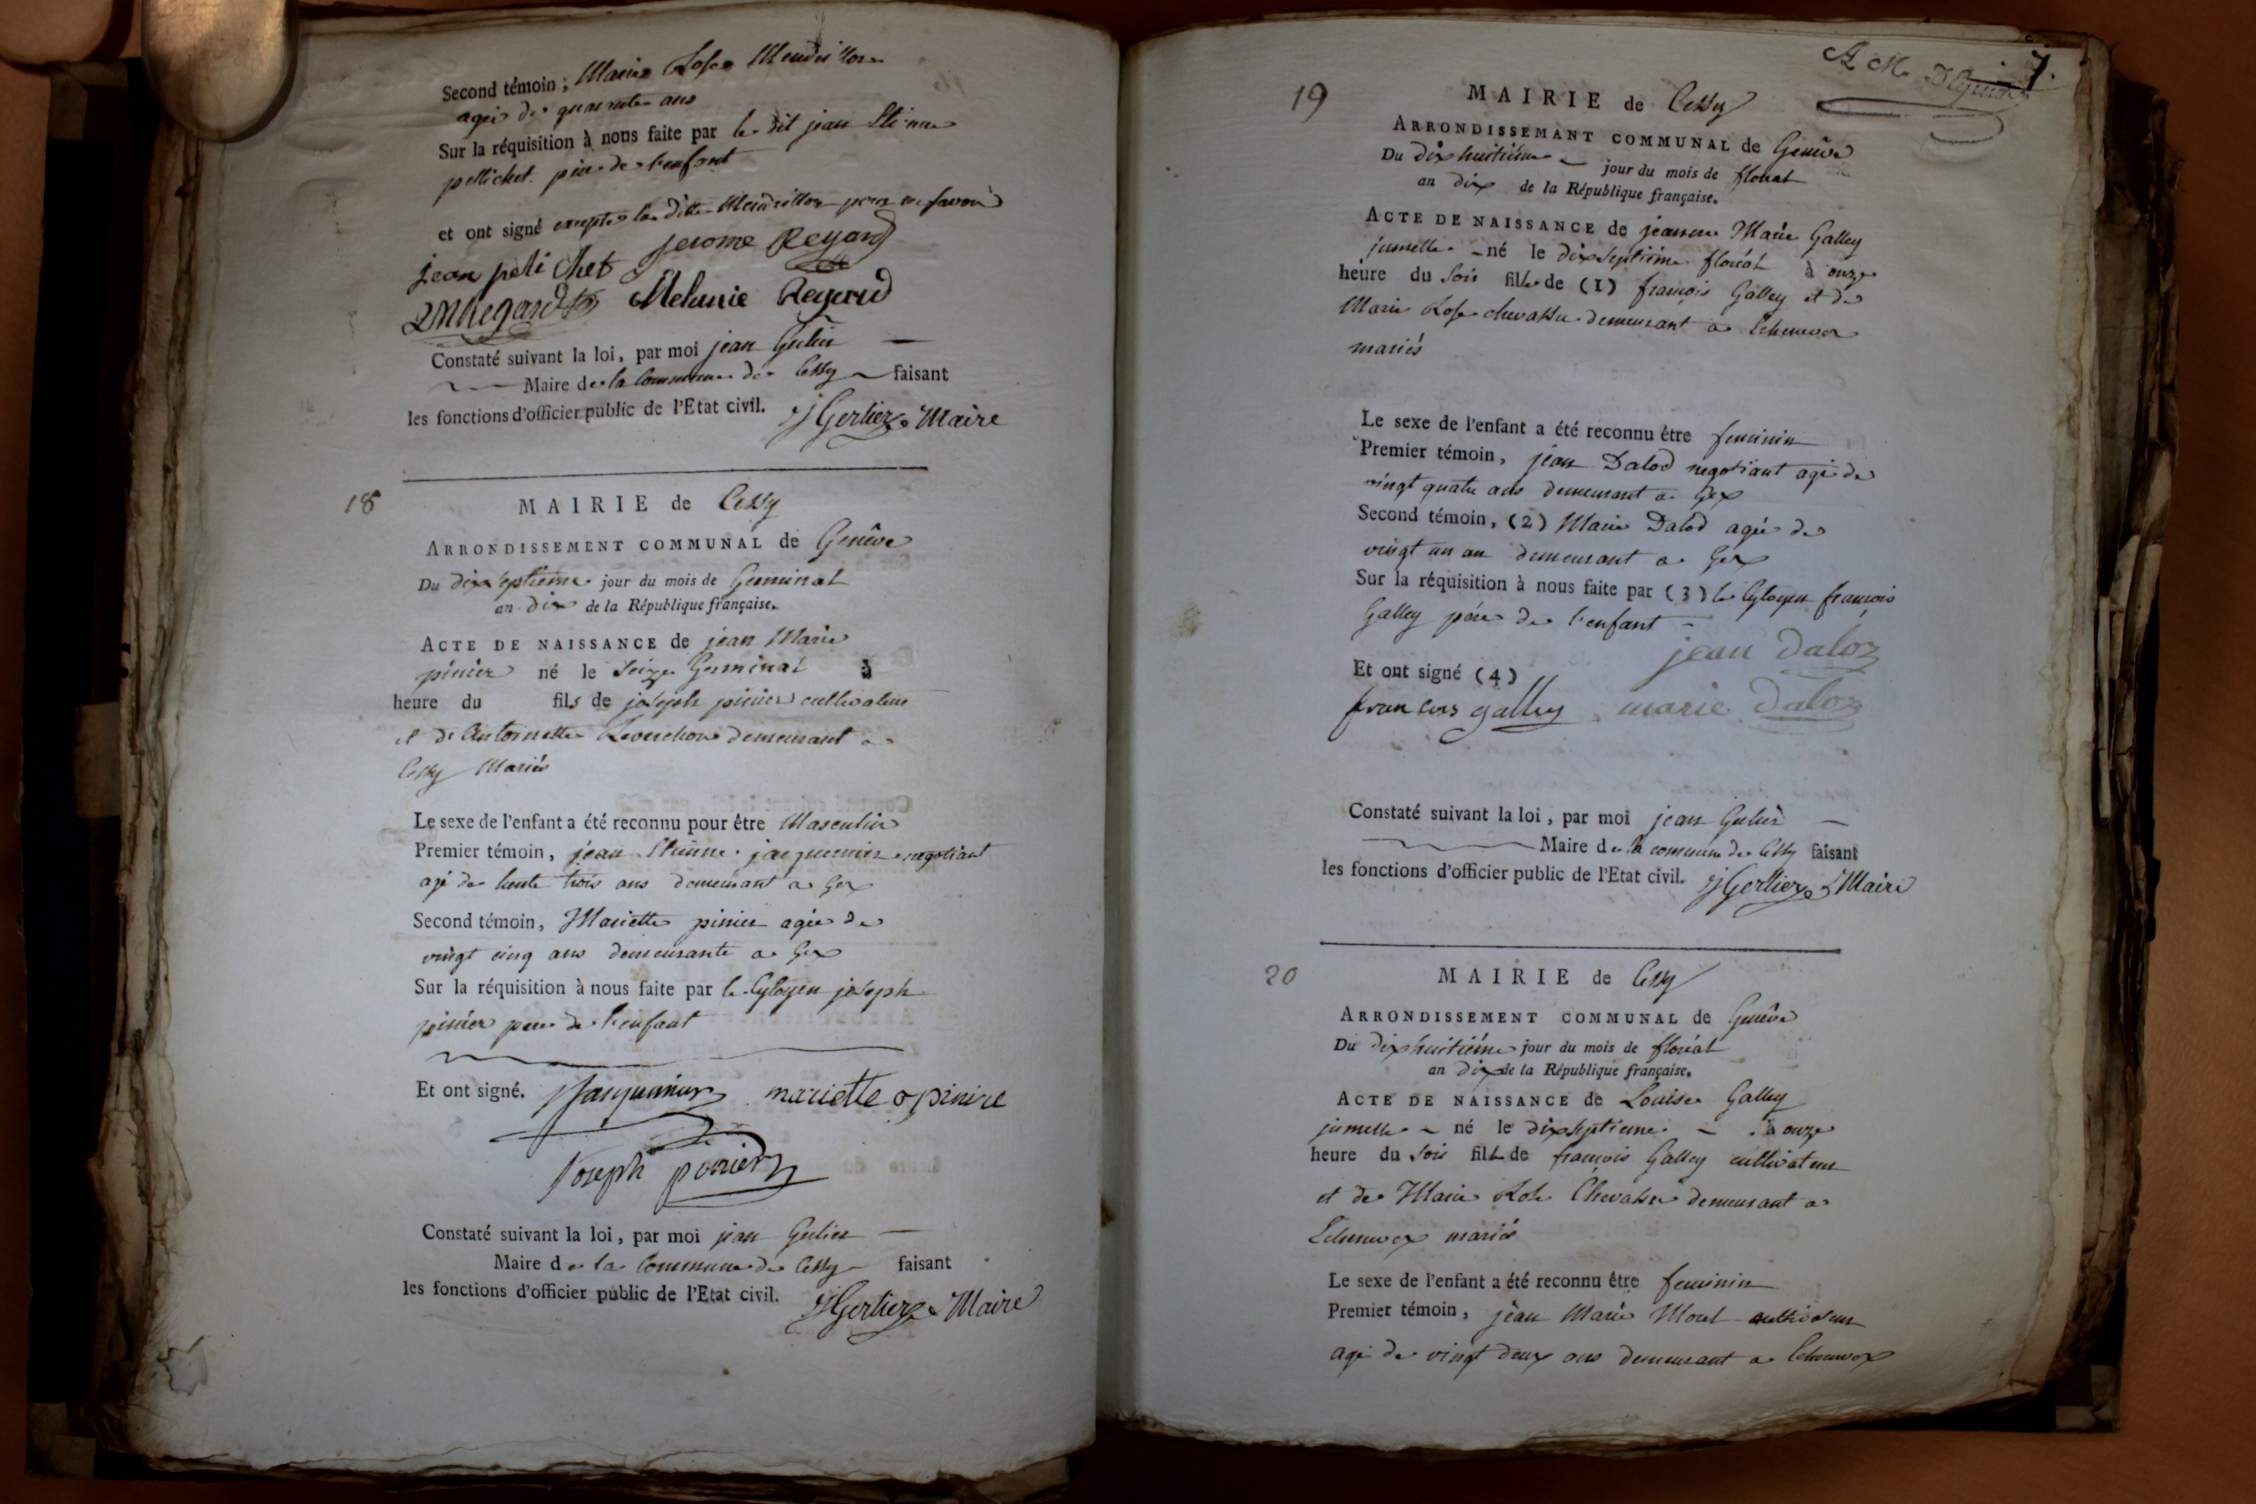 Second témoin ; Marie Rose Mendrillon
agée de quarante ans
Sur la réquisition à nous faite par le dit jean Etienne
pettichet père de l'enfant
et ont signé excepté la ditte Mendrillon pour ne savoir
jean peti chet jerome Reyard
Melanie Reyard
Constaté suivant la loi, par moi jean Gerlier
Maire de la Commune de Cessy faisant
les fonctions d'officier public de l'Etat civil. J Gerlier Maire
18
MAIRIE de Cessy
ARRONDISSEMENT COMMUNAL de Genêve
Du dix septieme jour du mois de Germinal
an dix de la République française.
ACTE DE NAISSANCE de jean Marie
pinier né le Seize Germinal à
heure du fils de joseph pinier cultivateur
et de Antoinette Reverchon demeurant a
Cessy Mariés
Le sexe de l'enfant a été reconnu pour être Masculin
Premier témoin, jean Etienne jacquemier negotiant
agé de trente trois ans demeurant a Gex
Second témoin, Mariette pinier agée de
vingt cinq ans demeurante a Gex
Sur la réquisition à nous faite par le Cytoyen joseph
pinier pere de l'enfant
Et ont signé. Jacquemier mariette pinire
Joseph pinier
Constaté suivant la loi, par moi jean Gerlier
Maire de la Commune de Cessy faisant
les fonctions d'officier public de l'Etat civil. J Gerlier Maire
7.
19
MAIRIE de Cessy
ARRONDISSEMANT COMMUNAL de Genêve
Du dix huitiéme jour du mois de floreal
an dix de la République française.
ACTE DE NAISSANCE de jeanne Marie Galley
jumelle né le dix septiéme floréal à onze
heure du soir fille de (1) françois Galley et de
Marie Rose chevassu demeurant a Echenevex
mariés
Le sexe de l'enfant a été reconnu être feminin
Premier témoin, jean Dalod negotiant agé de
vingt quatre ans demeurant a Gex
Second témoin, (2) Marie Dalod agée de
vingt un an demeurant a Gex
Sur la réquisition à nous faite par (3) le Cytoyen françois
Galley pére de l'enfant
jean daloz
Et ont signé (4)
francois galley marie daloz
Constaté suivant la loi, par moi jean Gerlier
Maire de la commune de Cessy faisant
les fonctions d'officier public de l'Etat civil. J Gerlier Maire
20
MAIRIE de Cessy
ARRONDISSEMENT COMMUNAL de Genêve
Du dix huitiéme jour du mois de floréal
an dix de la République française.
ACTE DE NAISSANCE de Louise Galley
jumelle né le dix septieme à onze
heure du soir fille de françois Galley cultivateur
et de Marie Rose Chevassu demeurant a
Echenevex mariés
Le sexe de l'enfant a été reconnu être feminin
Premier témoin, jean Marie Morel cultivateur
agé de vingt deux ans demeurant a Echenevex